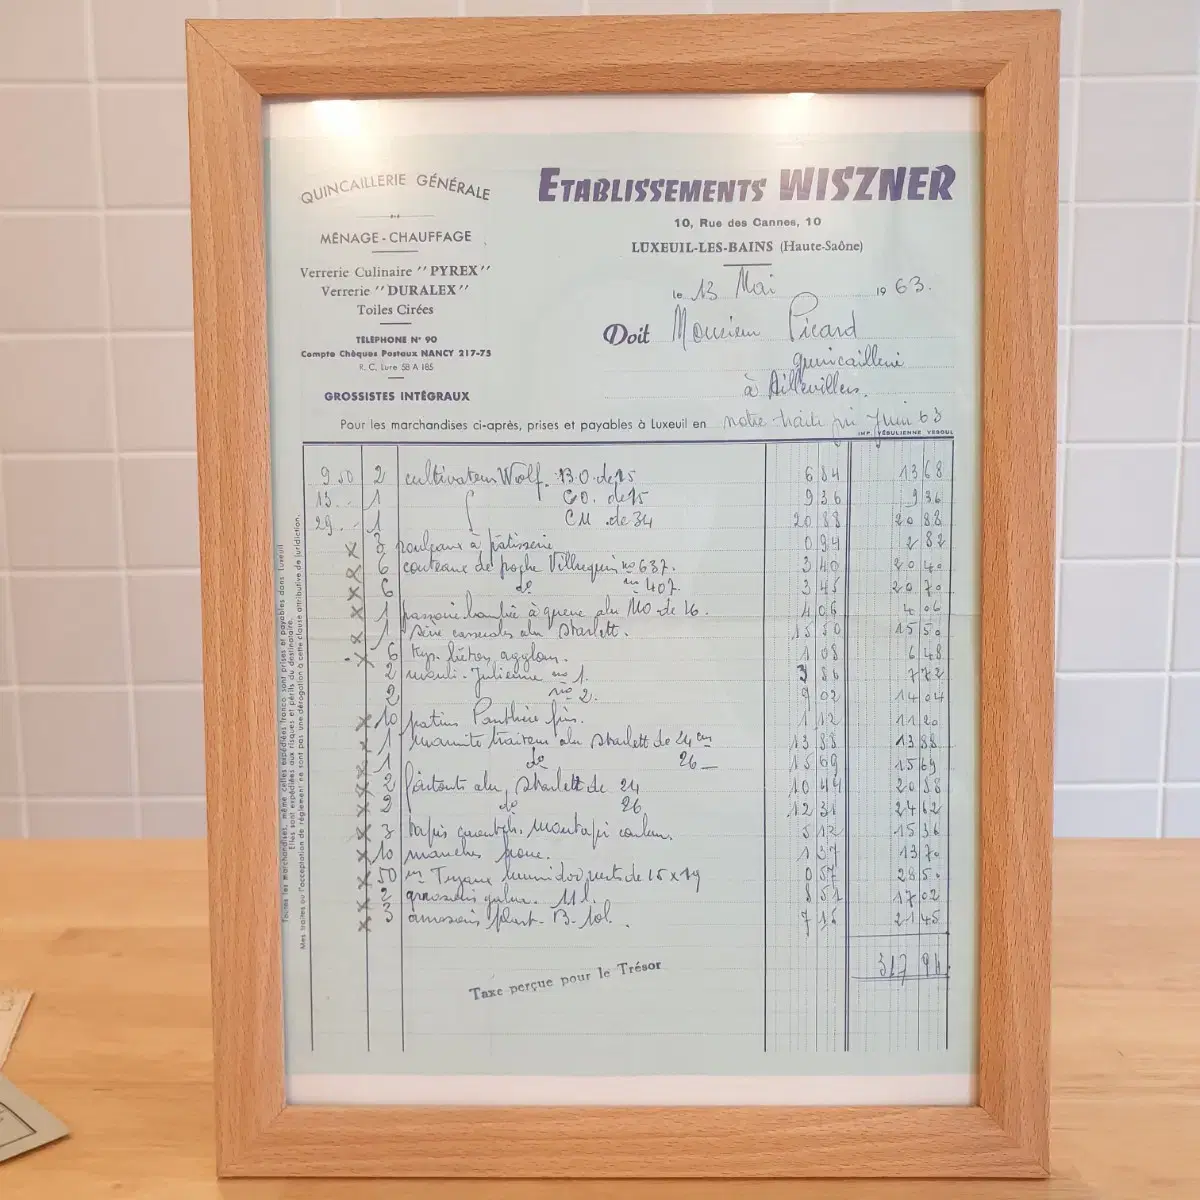 QUINCAILLERIE GÉNÉRALE
MÉNAGE - CHAUFFAGE
Verrerie Culinaire "PYREX"
Verrerie "DURALEX"
Toiles Cirées
TÉLÉPHONE N° 90
Compte Chèques Postaux NANCY 217-75
R. C. Lure 58 A 185
GROSSISTES INTÉGRAUX
ETABLISSEMENTS WISZNER
10, Rue des Cannes, 10
LUXEUIL-LES-BAINS (Haute-Saône)
le 13 Mai 1963.
Doit Monsieur Picard
quincaillerie
à Aillevillers.
Pour les marchandises ci-après, prises et payables à Luxeuil en notre traite fin Juin 63
IMP. VÉSULIENNE VESOUL
9 50 2 cultivateurs Wolf. BO. de 15 6 84 13 68
13. - 1 CO. de 15 9 36 9 36
29. - 1 CM. de 34 20 88 20 88
3 rouleaux à pâtisserie 0 94 2 82
6 couteaux de poche Villequin no 637. 3 40 20 40
6 do no 407. 3 45 20 70
1 passoire bombée à queue alu MO de 16. 4 06 4 06
1 série casseroles alu Starlett. 15 50 15 50
6 1 08 6 48
2 mouli-Julienne no 1. 3 86 7 72
2 no 2. 9 02 14 04
10 patins Panthère fins. 1 12 11 20
1 marmite traiteur alu Starlett de 24 cm 13 88 13 88
1 do 26 — 15 69 15 69
2 faitouts alu Starlett de 24 10 44 20 88
2 do 26 12 31 24 62
3 tapis couleur. 5 12 15 36
10 manches 1 37 13 70
50 m Tuyaux de 15 x 19 0 57 28 50
2 galva. 11 l. 8 51 17 02
3 arrosoirs plast. B. 10l. 7 15 21 45
317 94
Taxe perçue pour le Trésor
Toutes les marchandises, même celles expédiées franco sont prises et payables dans Luxeuil
Elles sont expédiées aux risques et périls du destinataire.
Mes traites ou l'acceptation de règlement ne sont pas une dérogation à cette clause attributive de juridiction.